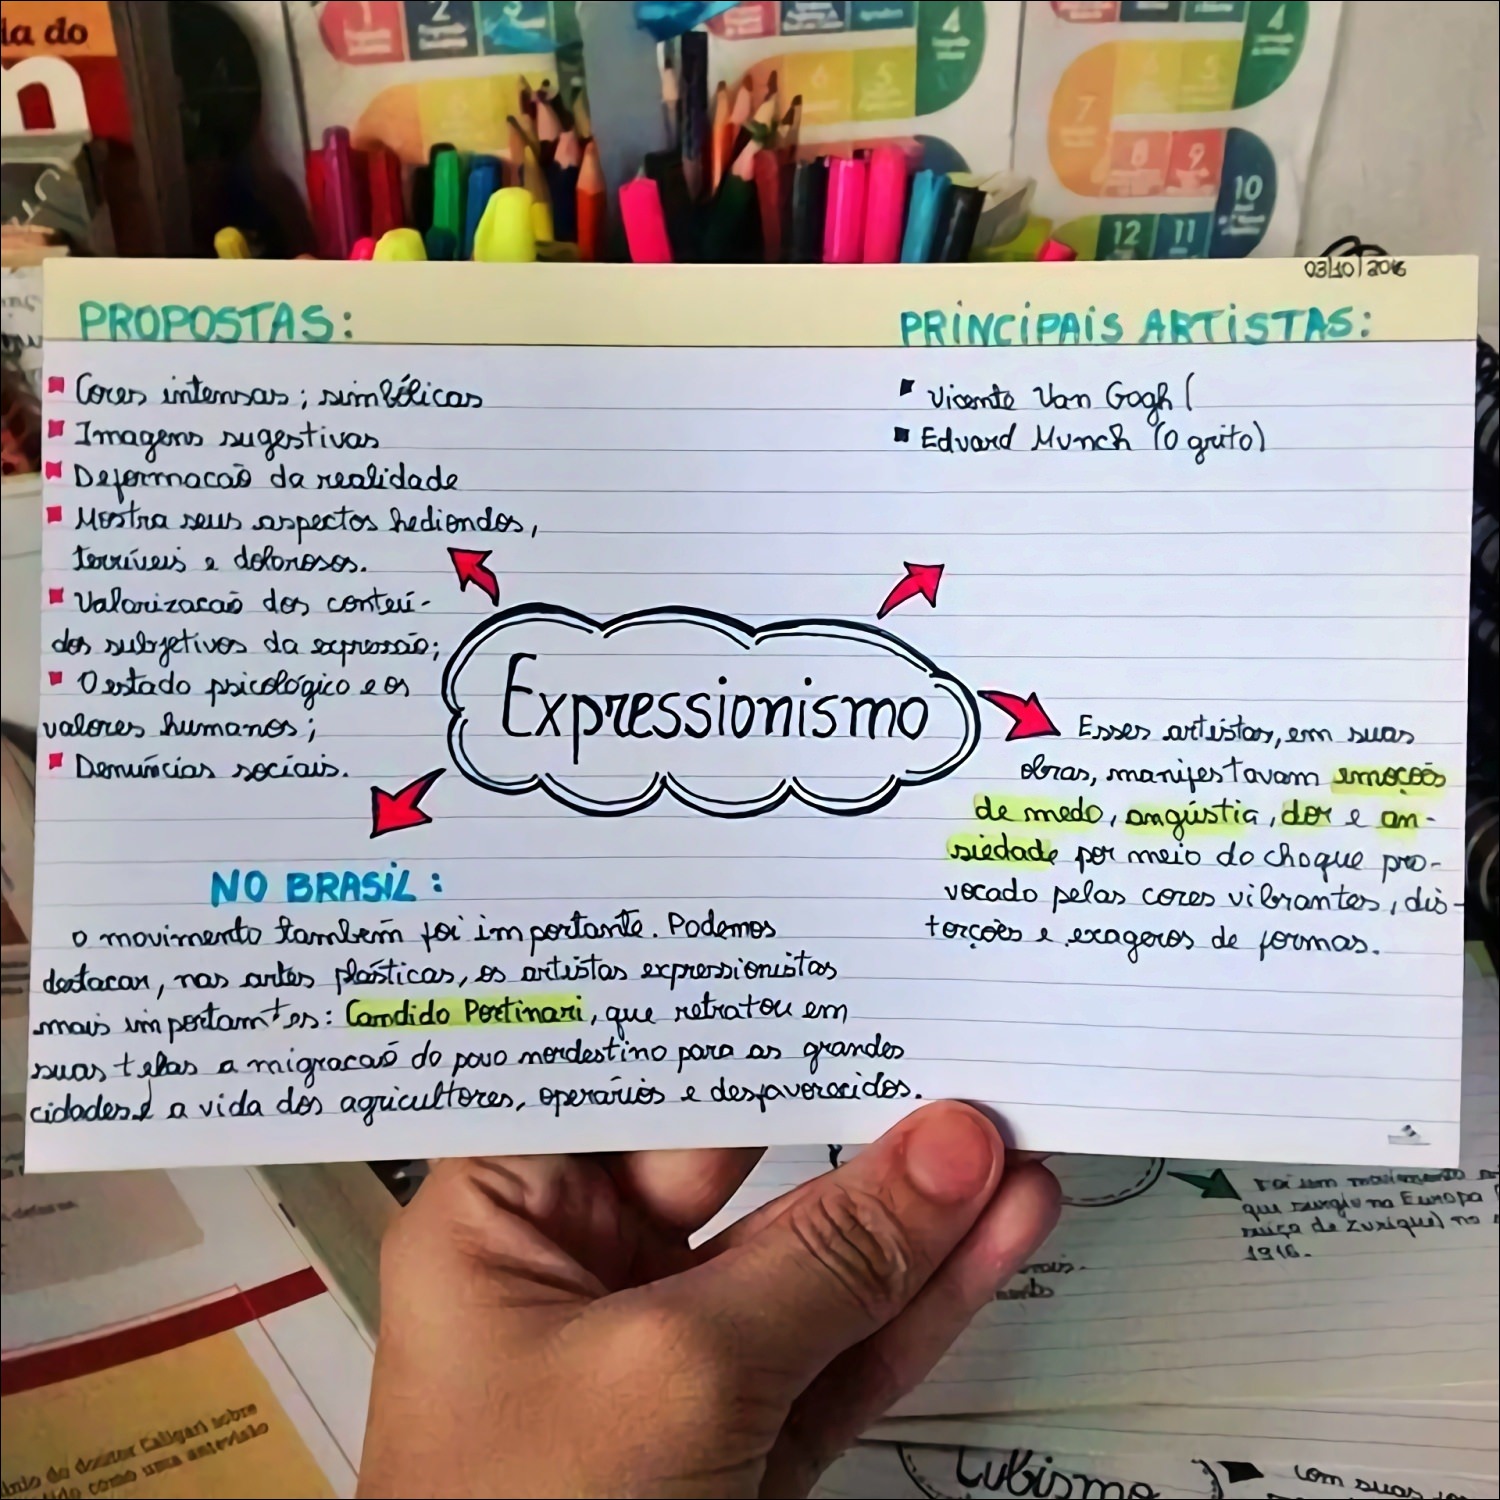 la do
n
1
2
3
4
4
6
5
6
5
7
8
9
10
12
11
03/10/2016
PROPOSTAS:
Cores intensas; simbólicas
Imagens sugestivas
Deformacaõ da realidade
Mostra seus aspectos hediondos,
terríveis e dolorosos.
Valorizacaõ dos conteú-
dos subjetivos da expressão;
O estado psicológico e os
valores humanos;
Denúncias sociais.
PRINCIPAIS ARTISTAS:
Vicente Van Gogh (
Edvard Munch (O grito)
Expressionismo
Esses artistas, em suas
obras, manifestavam emoções
de medo, angústia, dor e an-
siedade por meio do choque pro-
vocado pelas cores vibrantes, dis-
torções e exageros de formas.
NO BRASIL:
o movimento também foi importante. Podemos
destacar, nas artes plásticas, os artistas expressionistas
mais importantes: Candido Portinari, que retratou em
suas telas a migracaõ do povo nordestino para as grandes
cidades e a vida dos agricultores, operários e desfavorecidos.
Foi um movimento
que surgiu na Europa
suíça de Zurique) no
1916.
doutor Caligari sobre
tido como uma
Cubismo
com suas